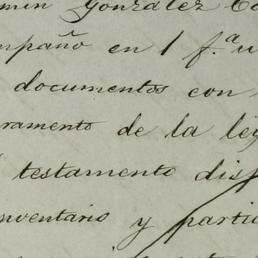 min González Co
mpaño en 1 f.ª u
documentos con
ramento de la ley
testamento disp
nventario y partic